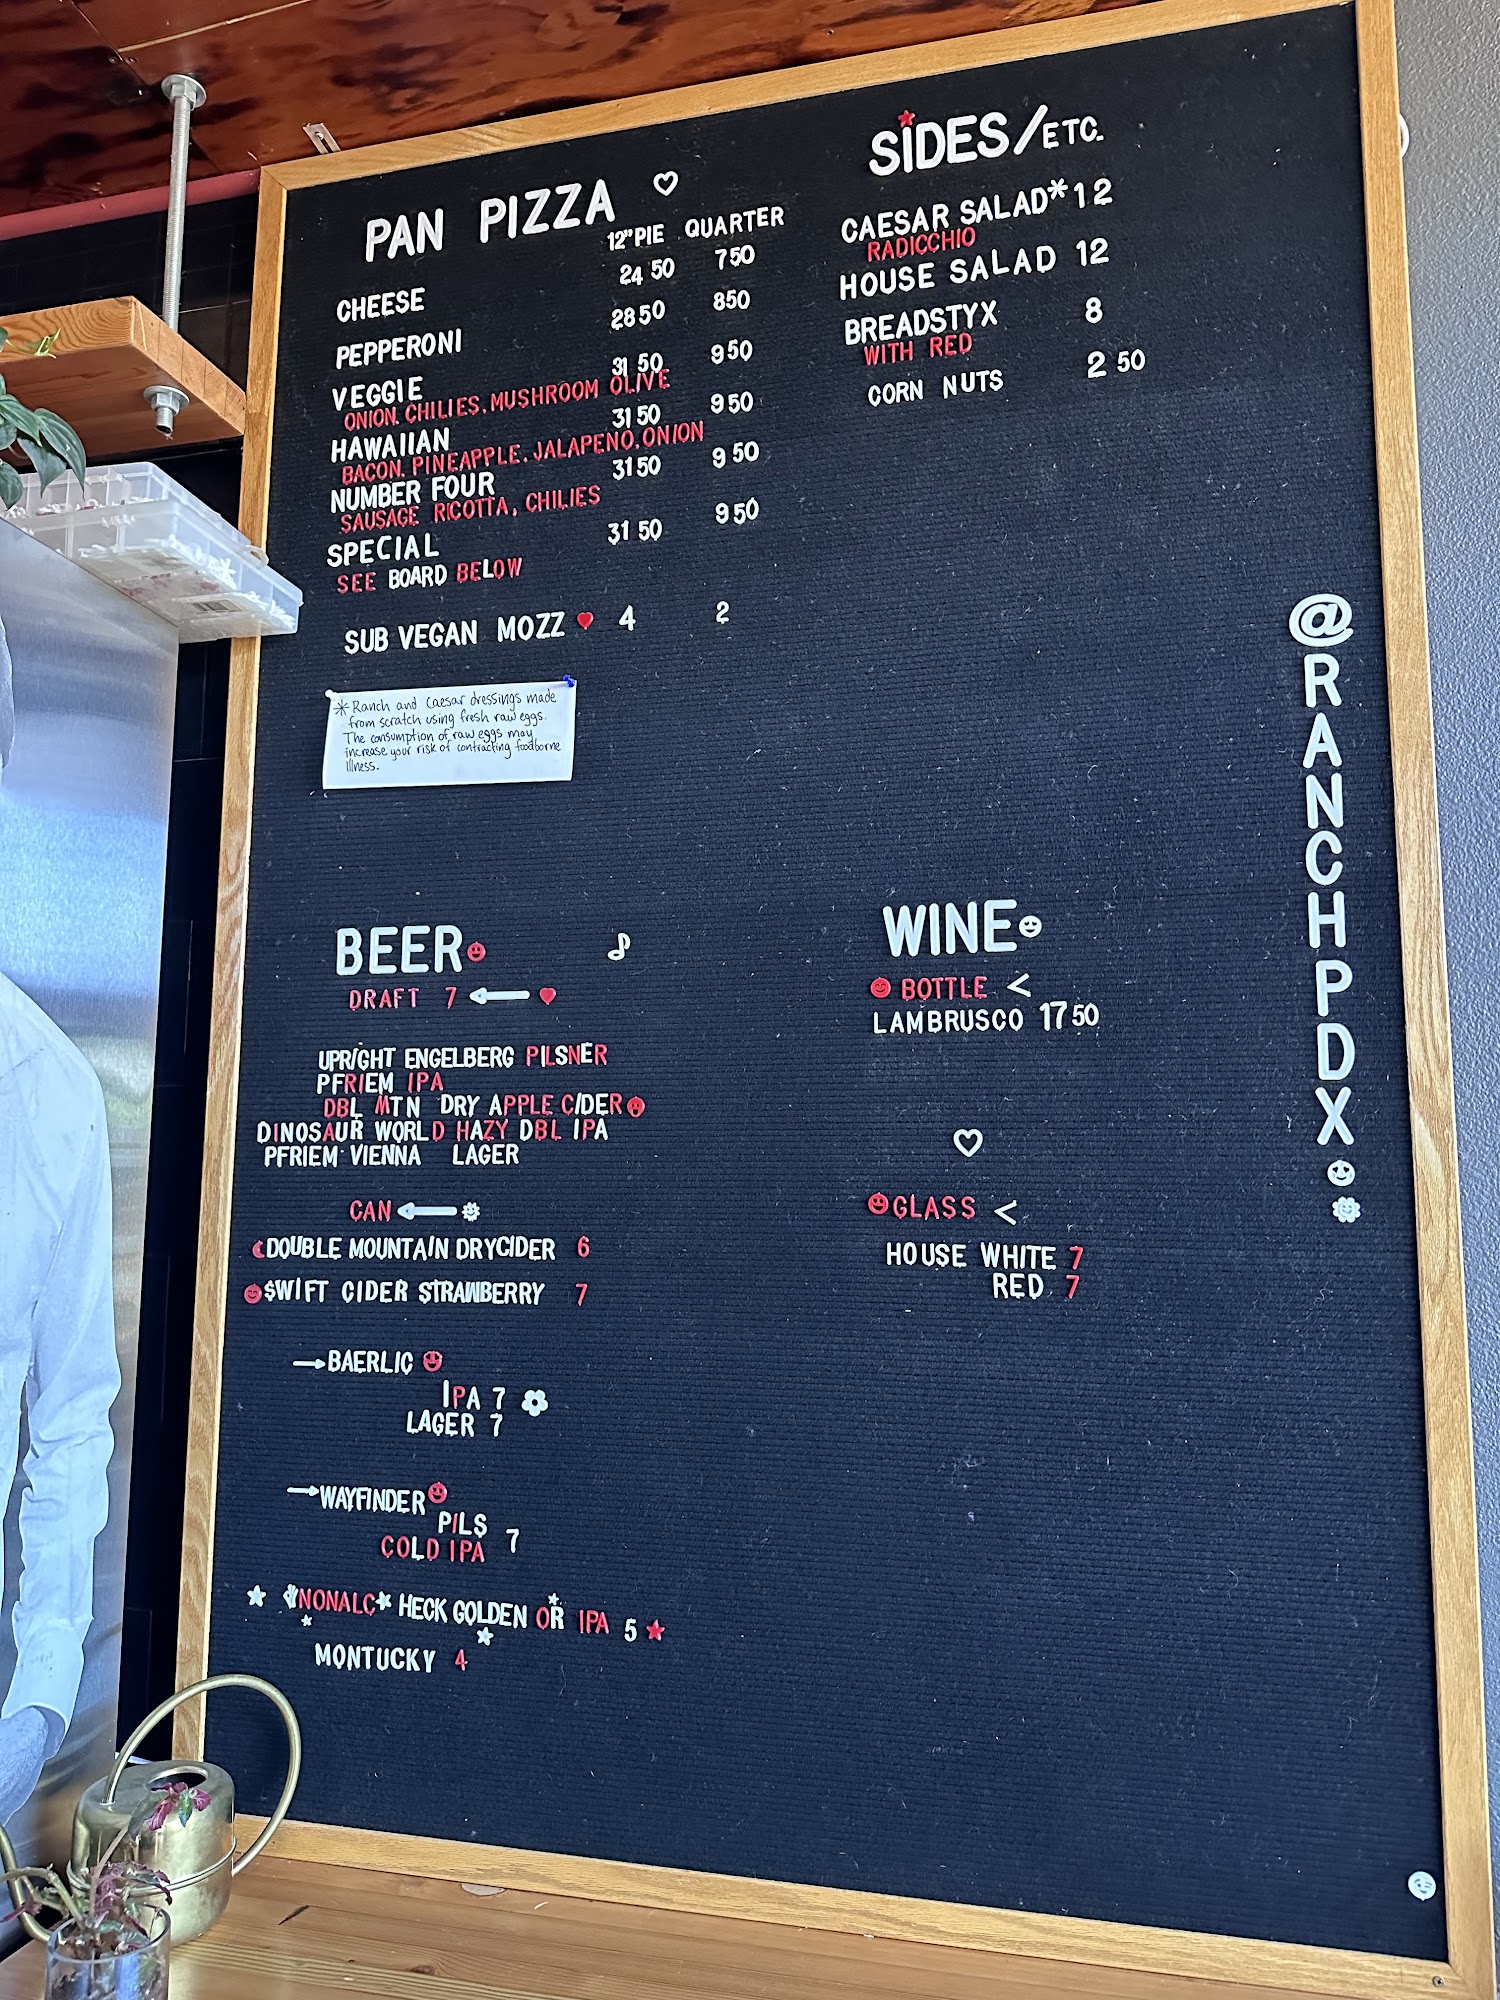 PAN PIZZA
12" PIE QUARTER
CHEESE 24 50 7 50
PEPPERONI 28 50 8 50
VEGGIE 31 50 9 50
ONION, CHILIES, MUSHROOM OLIVE
HAWAIIAN 31 50 9 50
BACON, PINEAPPLE, JALAPENO, ONION
NUMBER FOUR 31 50 9 50
SAUSAGE RICOTTA, CHILIES
SPECIAL 31 50 9 50
SEE BOARD BELOW
SUB VEGAN MOZZ 4 2
* Ranch and Caesar dressings made
from scratch using fresh raw eggs.
The consumption of raw eggs may
increase your risk of contracting foodborne
illness.
SIDES/ETC.
CAESAR SALAD* 12
RADICCHIO
HOUSE SALAD 12
BREADSTYX 8
WITH RED
CORN NUTS 2 50
BEER
DRAFT 7
UPRIGHT ENGELBERG PILSNER
PFRIEM IPA
DBL MTN DRY APPLE CIDER
DINOSAUR WORLD HAZY DBL IPA
PFRIEM VIENNA LAGER
CAN
DOUBLE MOUNTAIN DRYCIDER 6
$WIFT CIDER STRAWBERRY 7
BAERLIC
IPA 7
LAGER 7
WAYFINDER
PILS
COLD IPA 7
NONALC* HECK GOLDEN OR IPA 5
MONTUCKY 4
WINE
BOTTLE <
LAMBRUSCO 17 50
GLASS <
HOUSE WHITE 7
RED 7
@RANCHPDX